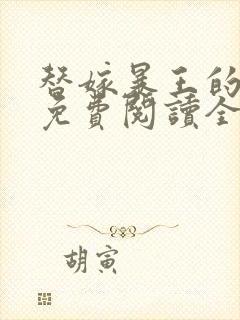 替嫁暴王的
免費閱讀全
胡寅